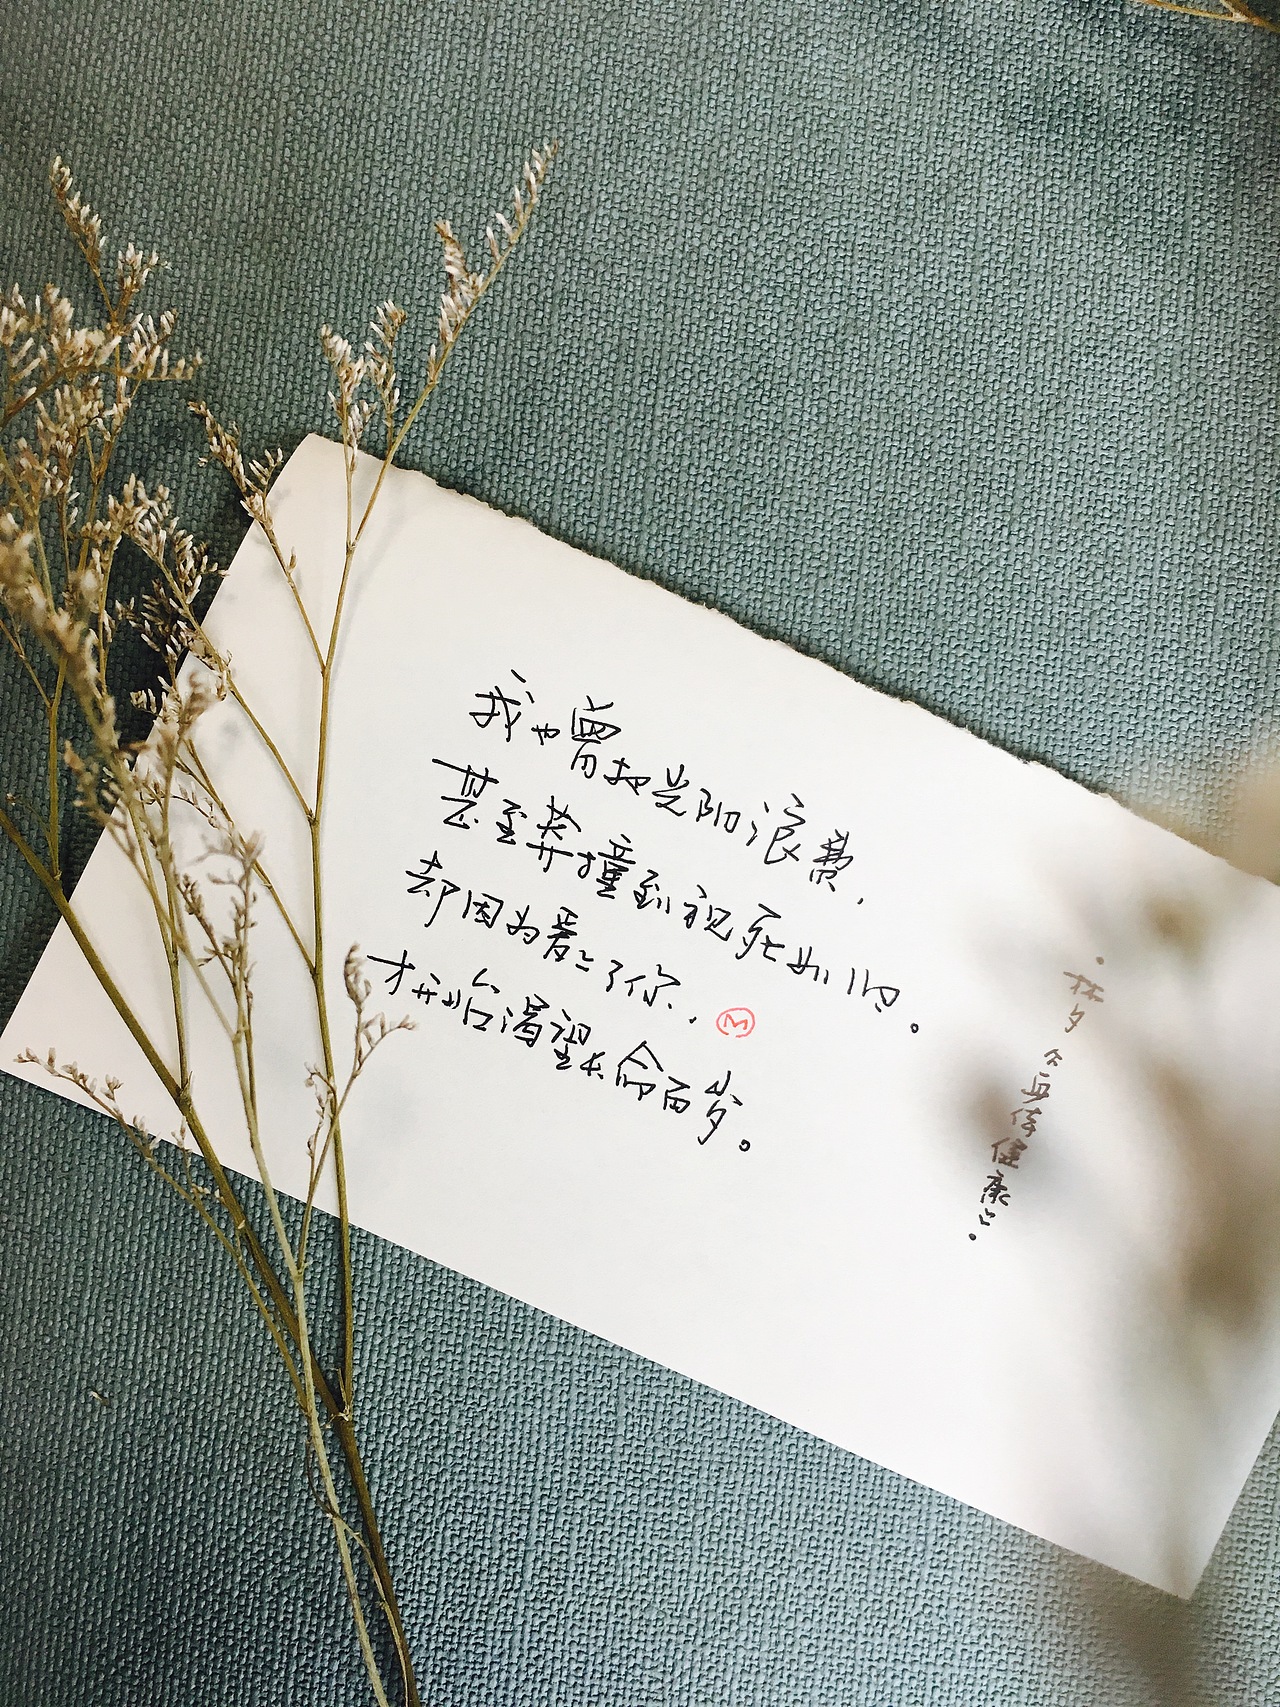 我也曾把光阴浪费，
甚至莽撞到视死如归。
却因为爱上了你，
才开始渴望长命百岁。
M
·林夕《身体健康》·